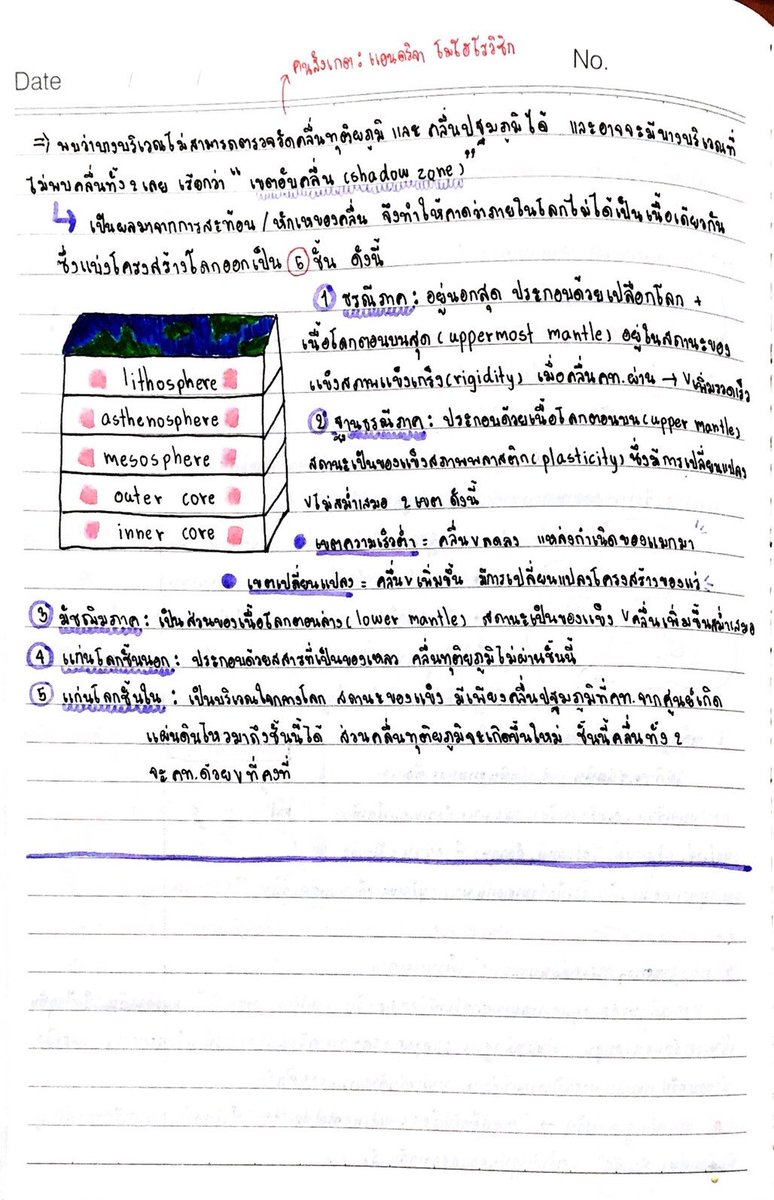 Date
คนสังเกต: แอนดริจา โมโฮโรวิซิก
No.
⇒ พบว่าบางบริเวณไม่สามารถตรวจวัดคลื่นทุติยภูมิ และ คลื่นปฐมภูมิได้ และอาจจะมีบางบริเวณที่
ไม่พบคลื่นทั้ง 2 เลย เรียกว่า "เขตอับคลื่น (shadow zone)"
↳ เป็นผลมาจากการสะท้อน / หักเหของคลื่น จึงทำให้คาดว่าภายในโลกไม่ได้เป็นเนื้อเดียวกัน
ซึ่งแบ่งโครงสร้างโลกออกเป็น 5 ชั้น ดังนี้
① ธรณีภาค : อยู่นอกสุด ประกอบด้วยเปลือกโลก +
เนื้อโลกตอนบนสุด (uppermost mantle) อยู่ในสถานะของ
แข็งสภาพแข็งเกร็ง (rigidity) เมื่อคลื่นคท. ผ่าน → v เพิ่มรวดเร็ว
② ฐานธรณีภาค : ประกอบด้วยเนื้อโลกตอนบน (upper mantle)
สถานะเป็นของแข็งสภาพพลาสติก (plasticity) ซึ่งมีการเปลี่ยนแปลง
v ไม่สม่ำเสมอ 2 เขต ดังนี้
• เขตความเร็วต่ำ = คลื่น v ลดลง แหล่งกำเนิดของแมกมา
• เขตเปลี่ยนแปลง = คลื่น v เพิ่มขึ้น มีการเปลี่ยนแปลงโครงสร้างของแร่
lithosphere
asthenosphere
mesosphere
outer core
inner core
③ มัชฌิมภาค : เป็นส่วนของเนื้อโลกตอนล่าง (lower mantle) สถานะเป็นของแข็ง v คลื่นเพิ่มขึ้นสม่ำเสมอ
④ แก่นโลกชั้นนอก : ประกอบด้วยสสารที่เป็นของเหลว คลื่นทุติยภูมิไม่ผ่านชั้นนี้
⑤ แก่นโลกชั้นใน : เป็นบริเวณใจกลางโลก สถานะของแข็ง มีเพียงคลื่นปฐมภูมิที่คท. จากศูนย์เกิด
แผ่นดินไหวมาถึงชั้นนี้ได้ ส่วนคลื่นทุติยภูมิจะเกิดขึ้นใหม่ ชั้นนี้คลื่นทั้ง 2
จะ คท. ด้วย v ที่คงที่